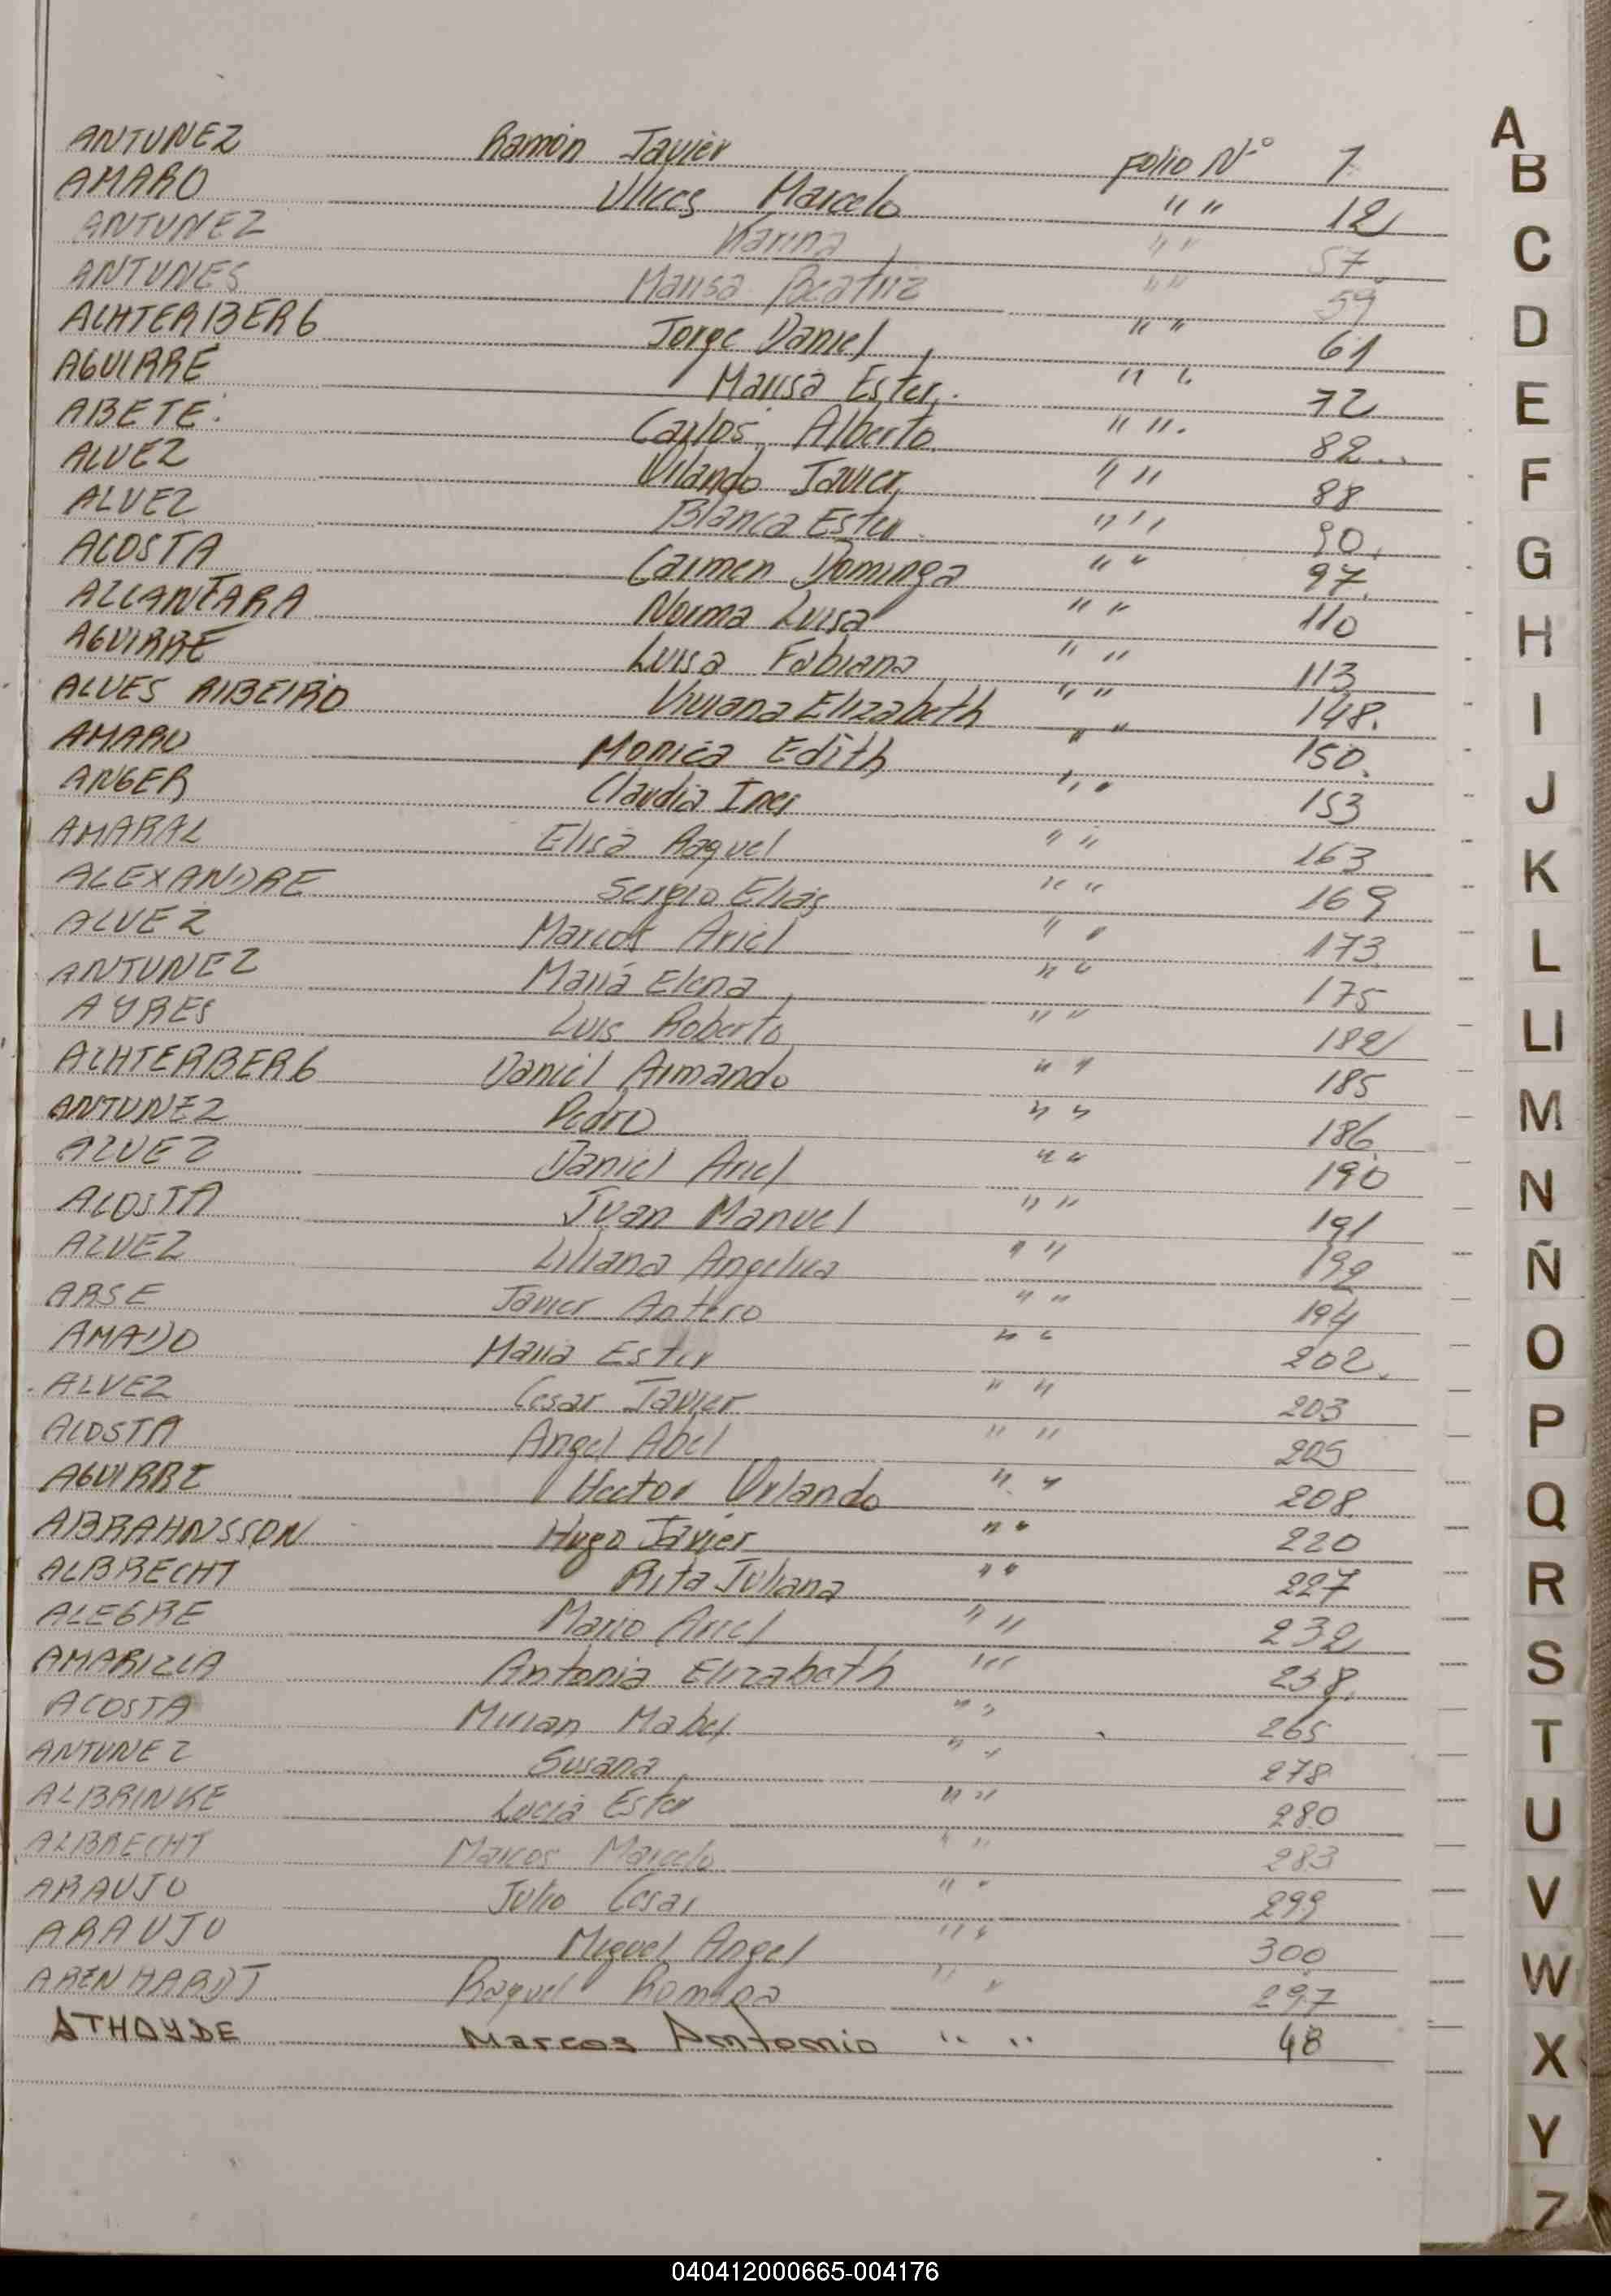 ANTUNEZ Ramón Javier Folio Nº 7
AMARO Ulices Marcelo " " 12
ANTUNEZ Karina " " 57
ANTUNES Marisa Beatriz " " 59
ACHTERBERG Jorge Daniel " " 61
AGUIRRE Marisa Ester " " 72
ABETE Carlos Alberto " " 82
ALVEZ Orlando Javier " " 88
ALVEZ Blanca Ester " " 90
ACOSTA Carmen Dominga " " 97
ALCANTARA Norma Luisa " " 110
AGUIRRE Luisa Fabiana " " 113
ALVES RIBEIRO Viviana Elizabeth " " 148.
AMARO Monica Edith " " 150.
ANGER Claudia Ines " " 153
AMARAL Elisa Raquel " " 163
ALEXANDRE Sergio Elias " " 169
ALVEZ Marcos Ariel " " 173
ANTUNEZ María Elena " " 175
AYRES Luis Roberto " " 182
ACHTERBERG Daniel Armando " " 185
ANTUNEZ Pedro " " 186
ALVEZ Daniel Ariel " " 190
ACOSTA Juan Manuel " " 191
ALVEZ Liliana Angelica " " 192
ARSE Javier Antero " " 194
AMADO Maria Ester " " 202.
ALVEZ Cesar Javier " " 203
ACOSTA Angel Abel " " 205
AGUIRRE Hector Orlando " " 208.
ABRAHNSSON Hugo Javier " " 220
ALBRECHT Rita Juliana " " 227
ALEGRE Mario Ariel " " 232
AMARILLA Antonia Elizabeth " " 238.
ACOSTA Mirian Mabel " " 265
ANTUNEZ Susana " " 278
ALBRINKE Lucia Ester " " 280
ALBRECHT Marcos Marcelo " " 283
ARAUJO Julio Cesar " " 299
ARAUJO Miguel Angel " " 300
ARENHARDT Raquel Romina " " 297
ATHAYDE Marcos Antonio " " 48
A
B
C
D
E
F
G
H
I
J
K
L
Ll
M
N
Ñ
O
P
Q
R
S
T
U
V
W
X
Y
Z
040412000665-004176